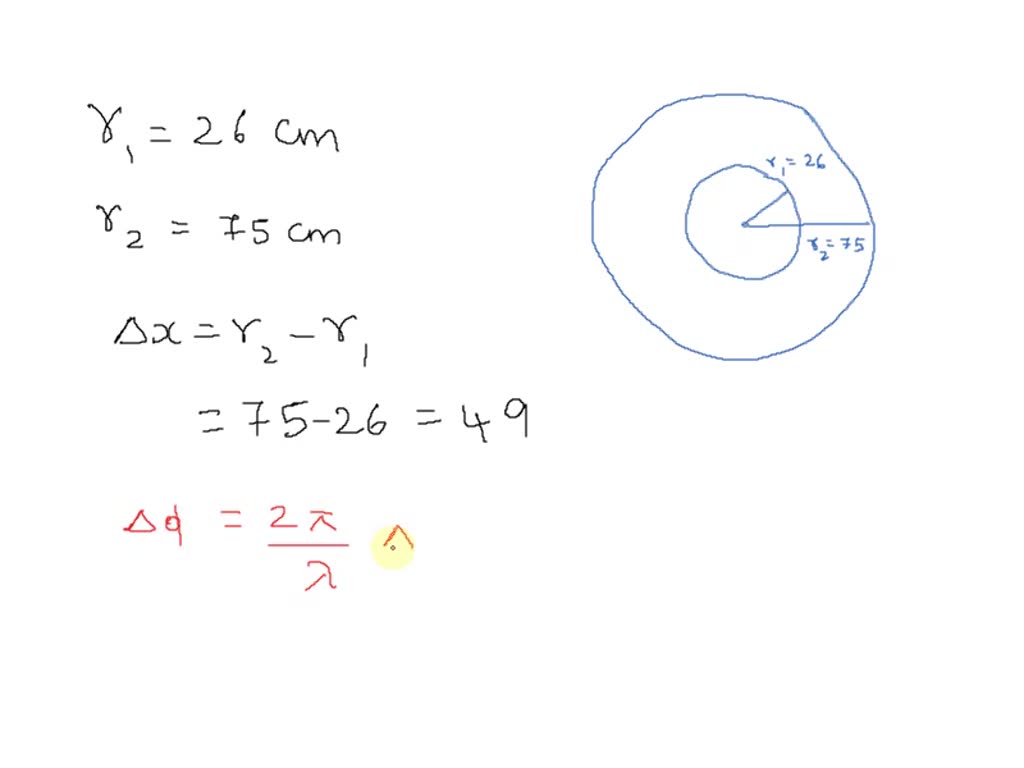 r₁ = 26 cm
r₂ = 75 cm
Δx = r₂ − r₁
= 75 − 26 = 49
Δϕ = 2π/λ Δ
r₁ = 26
r₂ = 75